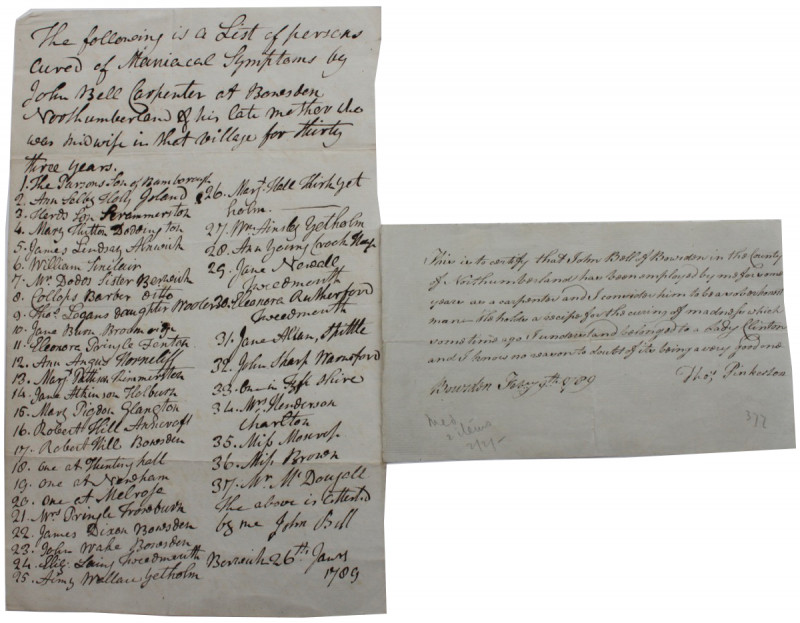 The following is a List of persons
cured of Maniacal Symptoms by
John Bell Carpenter at Bowsden
Northumberland & his late mother who
was midwife in that village for thirty
three years.
1. The Parsons Son of Bamborough
2. Ann Holy Island
3. Herds Son Scrammerston
4. Mary Hutton Doddington
5. James Lindsay Alnwick
6. William Sinclair
7. Mr. Dodds Sister Berwick
8. Collops Barber ditto
9. Thos. Logans Daughter Wooler
10. Jane Burn
11. Eleonora Pringle Fenton
12. Ann Angus Horncliff
13. Mary Kimmerston
14. Jane Atkinson Holburn
15. Mary Pigdon Glangton
16. Robert Hill Anncroft
17. Robert Hill Bowsden
18. one at Hunting hall
19. one at Noreham
20. one at Melrose
21. Mrs Pringle
22. James Dixon Bowsden
23. John Wake Bowsden
24. Laing Tweedmouth
25. Wallace Yetholm
26. Mart. Hall Kirk Yet
holm.
27. Wm. Ainsley Yetholm
28. Ann Young Crook
29. Jane
Tweedmouth
30. Eleanora Rutherford
Tweedmouth
31. Jane Allan, Spittle
32. John Sharp
33. One in Fife Shire
34. Mrs. Henderson
Charlton
35. Miss
36. Miss Brown
37. Mr. McDougall
The above is
by me John Bell
Berwick 26th. Jany
1789
This is to certify that John Bell of Bowsden in the County
of Northumberland has been employed by me for some
years as a carpenter and I consider him to be a sober honest
man. He holds a recipe for the curing of madness which
some time ago I understand belonged to a Lady Clinton
and I know no reason to doubt of its being a very good one
Bowsden Feby 7th 1789
Thos. Pinkerton
Med
2 items
377